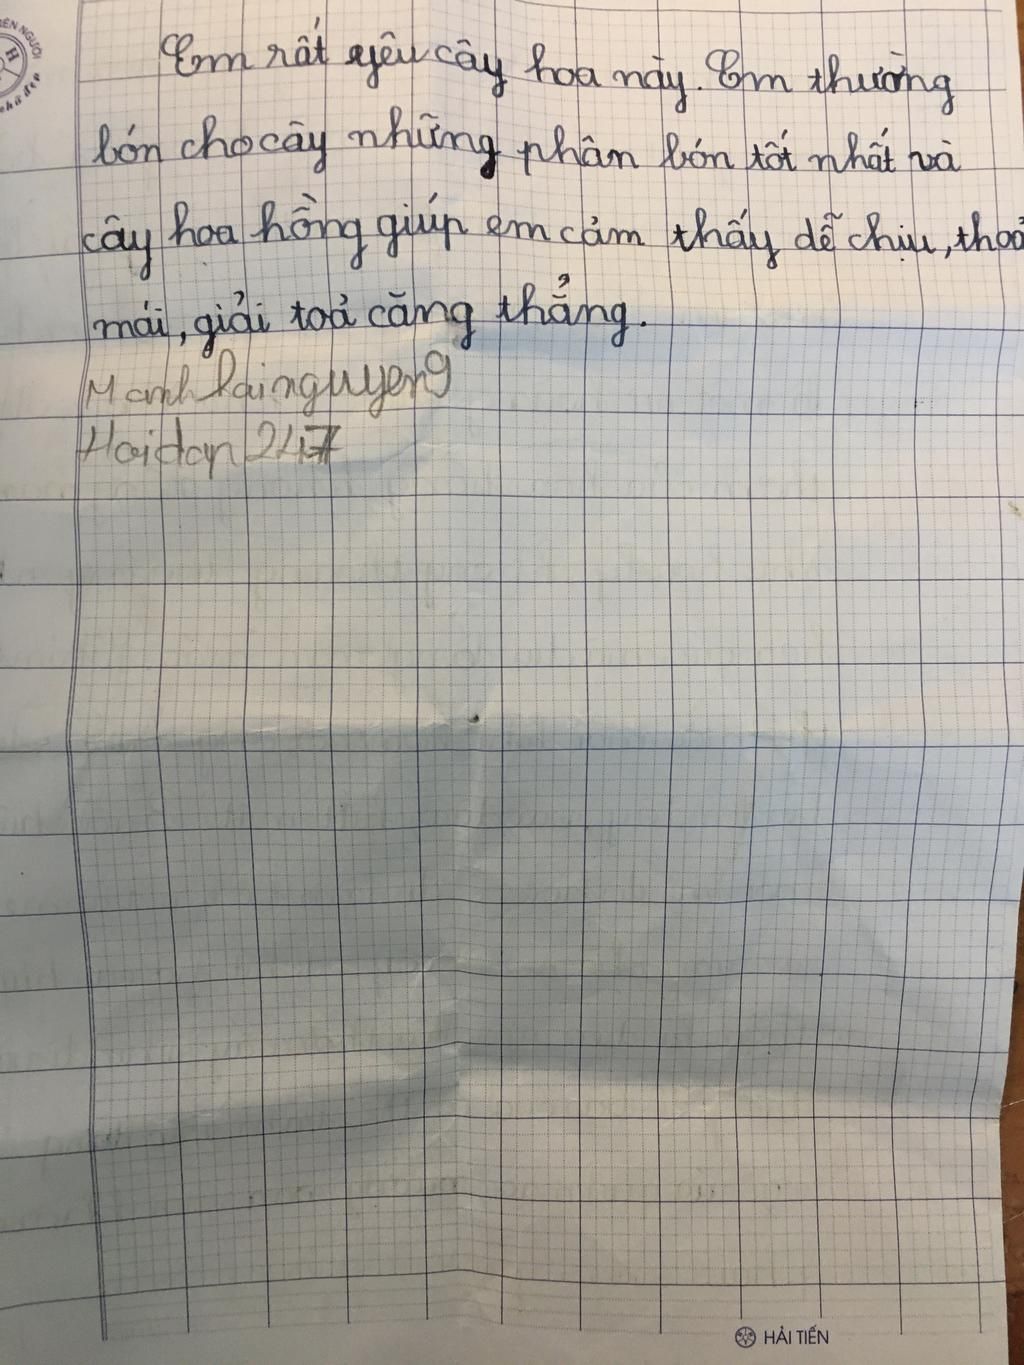 Em rất yêu cây hoa này. Em thường
bón cho cây những phân bón tốt nhất và
cây hoa hồng giúp em cảm thấy dễ chịu, thoả
mái, giải toả căng thẳng.
Hoidap247
HẢI TIẾN